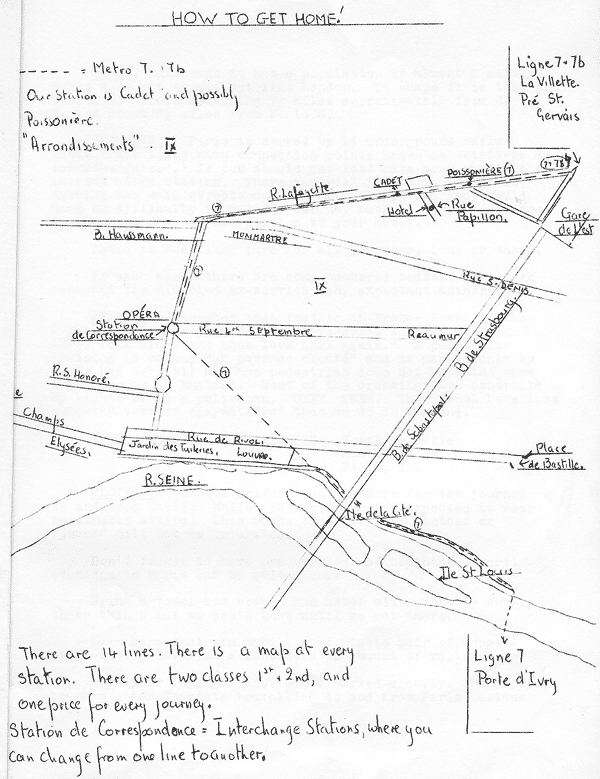 HOW TO GET HOME!
---- = Metro 7. 7b
Our Station is Cadet and possibly
Poissonièrc.
"Arrondissements". IX
Ligne 7+7b
La Villette.
Pré St.
Gervais
7+7B
POISSONIÈRE 7
CADET
R. Lafayette
7
Hotel
Rue
Papillon.
Gare
de l'est
B. Haussmann.
MONMARTRE
7
Rue S. DENIS
IX
OPÉRA
Station
de Correspondance
Rue 4th Septembre
Reaumur
B. de Strasbourg
7
R.S. Honoré.
e
Champs
Elysées.
Rue de Rivoli
Jardin des Tuileries. LOUVRE.
B. de Sebastopol.
Place
de Bastille.
R. SEINE.
Ile de la Cité.
7
Ile St Louis
Ligne 7
Porte d'Ivry
There are 14 lines. There is a map at every
station. There are two classes 1st + 2nd, and
one price for every journey.
Station de Correspondence = Interchange Stations, where you
can change from one line to another.